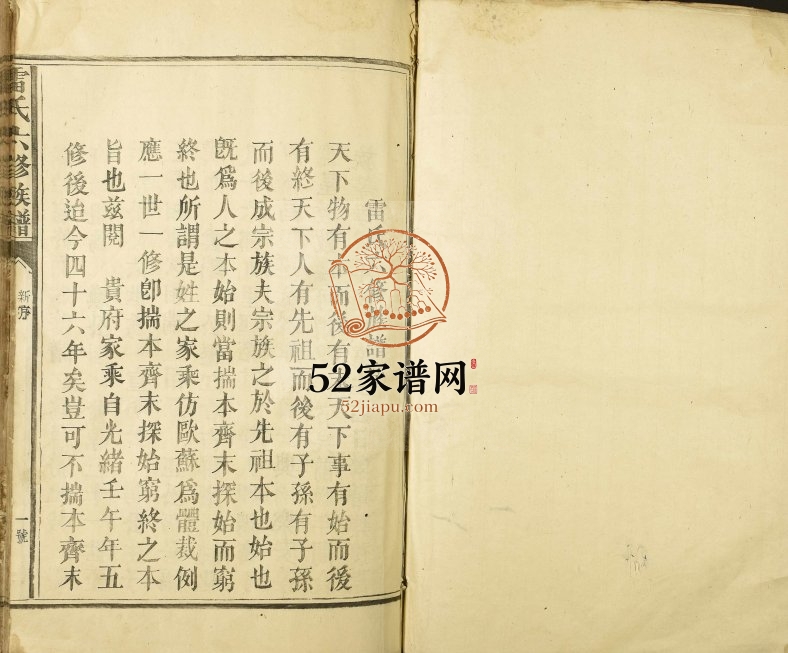 雷氏六修族譜
天下物有本而後有末天下事有始而後
有終天下人有先祖而後有子孫有子孫
而後成宗族夫宗族之於先祖本也始也
旣爲人之本始則當揣本齊末探始而窮
終也所謂是姓之家乘仿歐蘇爲體裁例
應一世一修卽揣本齊末探始窮終之本
旨也兹閱 貴府家乘自光緒壬午年五
修後迨今四十六年矣豈可不揣本齊末
雷氏六修族譜
新序
一號
52家谱网
52jiapu.com